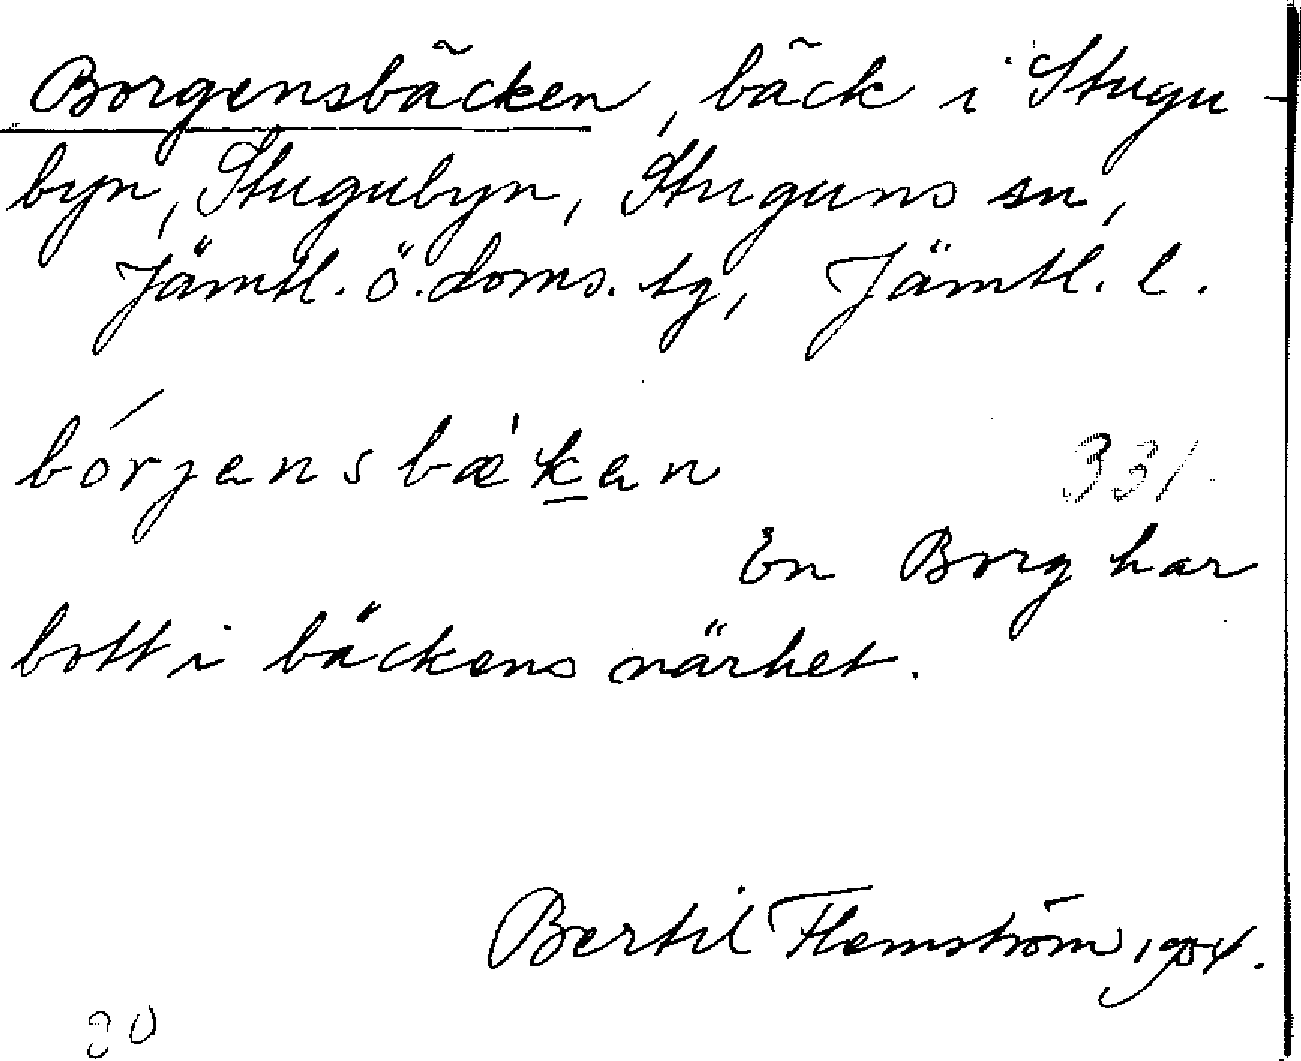 Borgensbäcken, bäck i Stugu-
byn, Stugubyn, Stuguns sn,
Jämtl. ö. doms. tg, Jämtl. l.
bórjensbæ'ken 331.
En Borg har
bott i bäckens närhet.
Bertil Flemström, 1954.
20